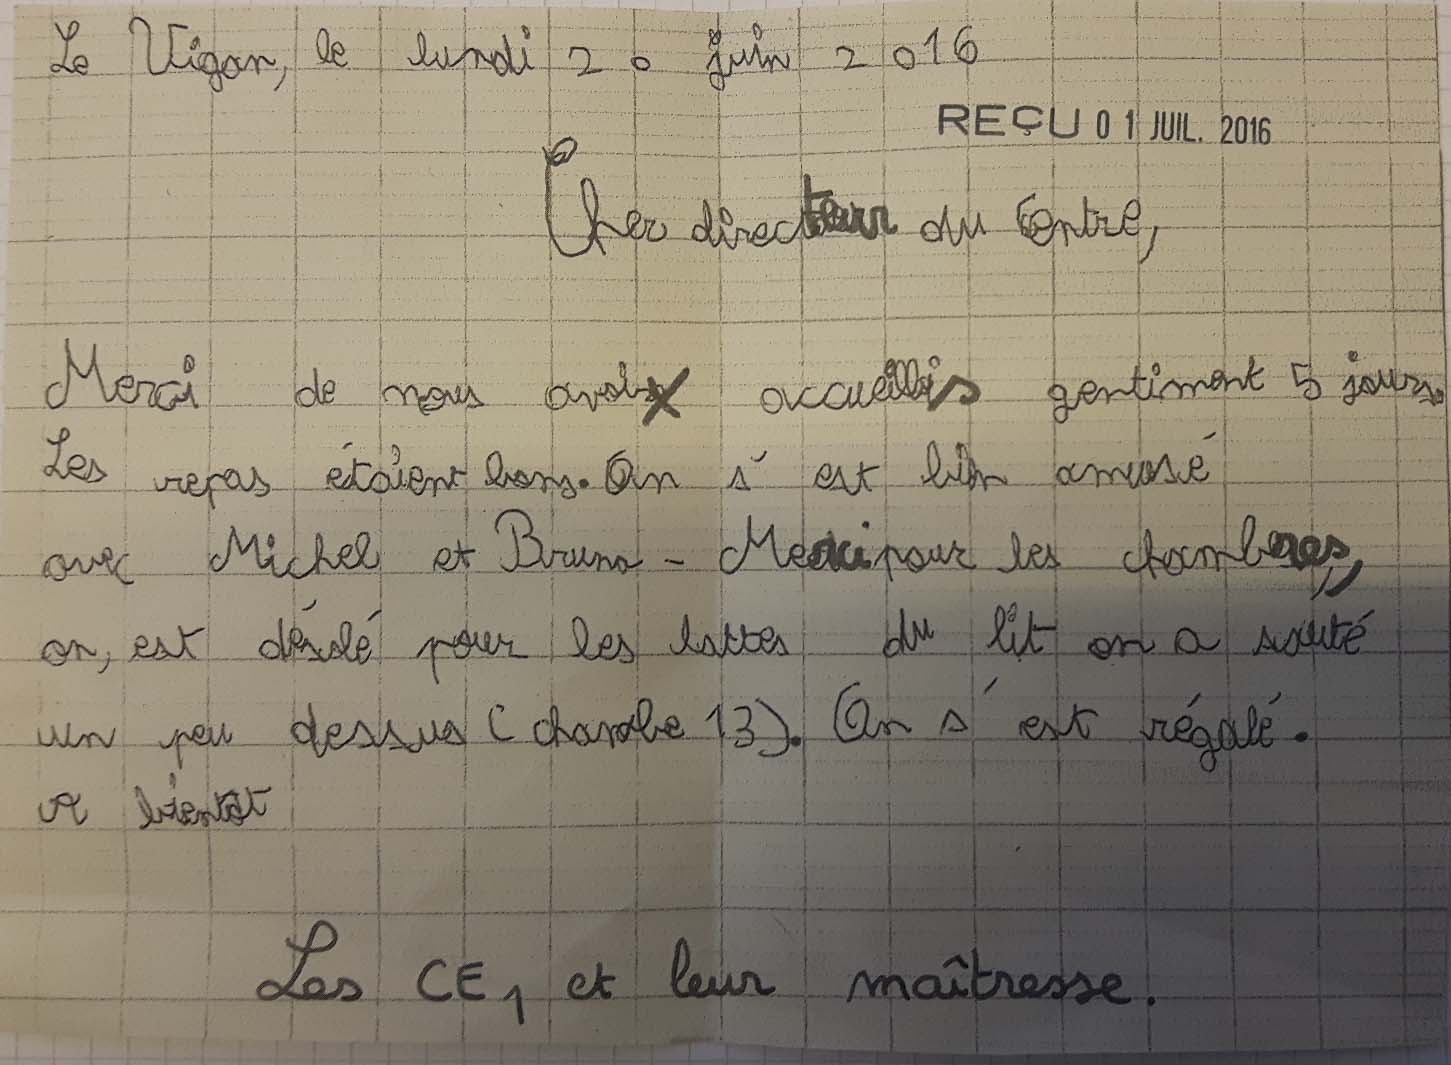 Le Vigan, le lundi 20 juin 2016
REÇU 01 JUIL. 2016
Cher directeur du Centre,
Merci de nous avoir accueillis gentiment 5 jours.
Les repas étaient bons. On s'est bien amusé
avec Michel et Bruno - Merci pour les chambres,
on, est désolé pour les lattes du lit on a sauté
un peu dessus (chambe 13). On s'est régalé.
A bientôt
Les CE1 et leur maîtresse.